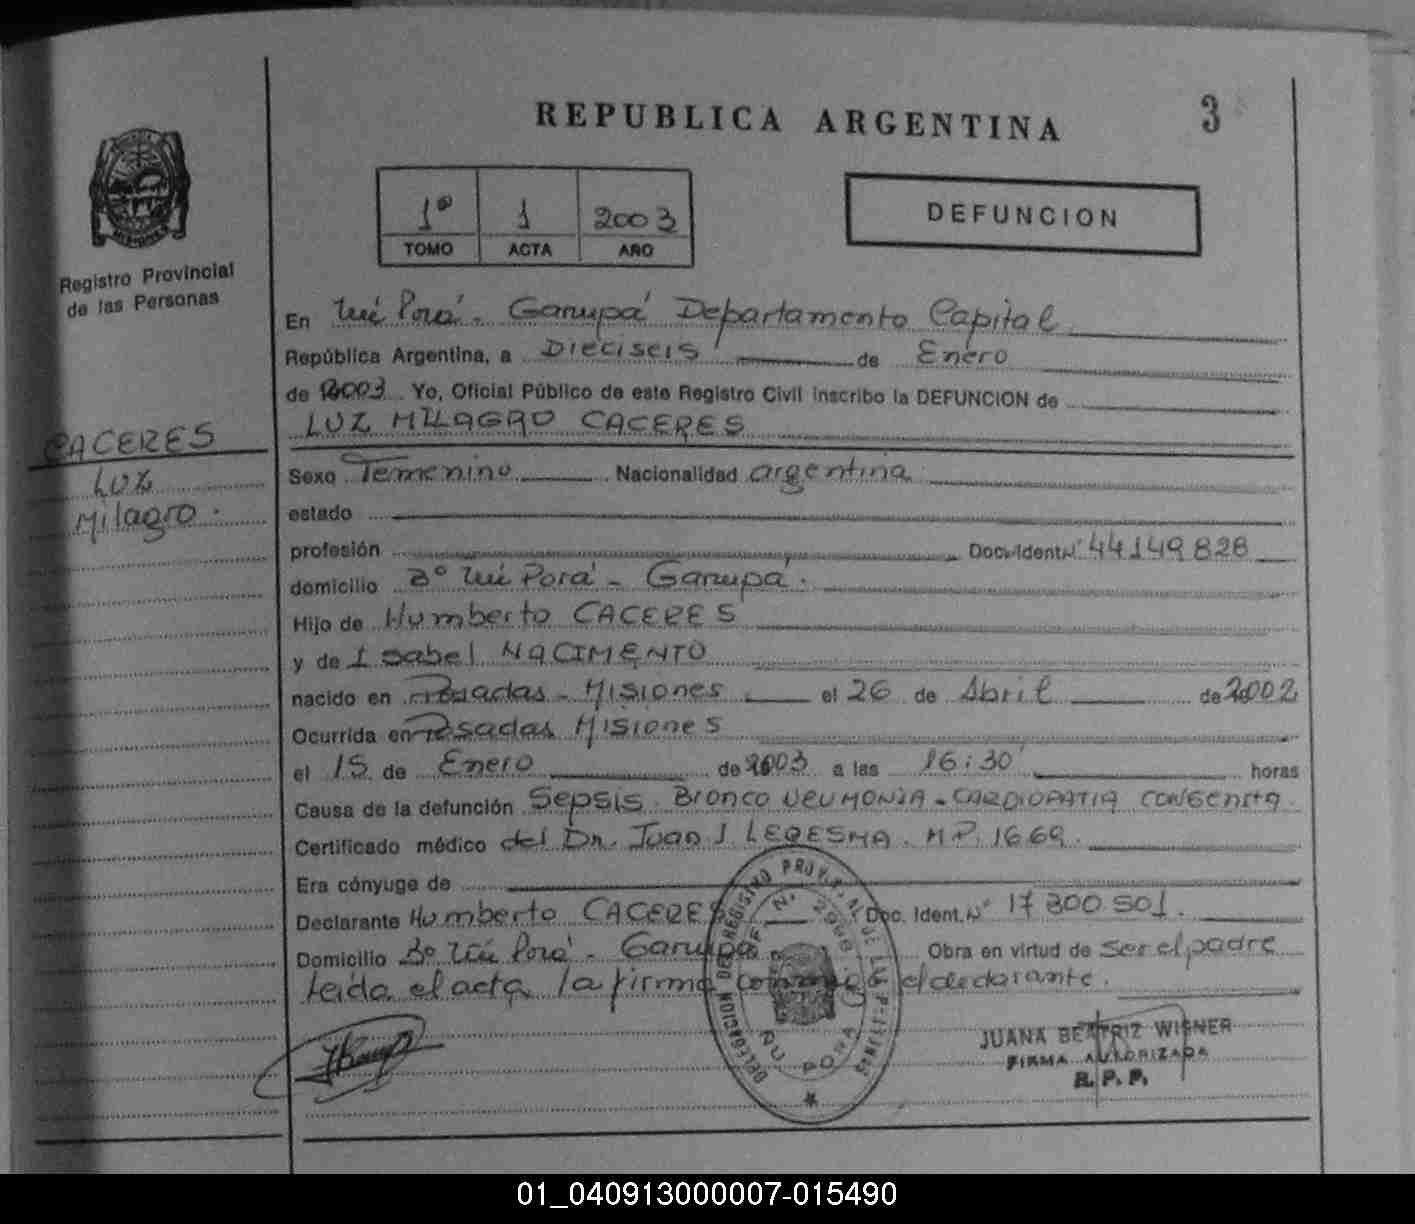 REPUBLICA ARGENTINA
3
1º 1 2003
TOMO ACTA AÑO
DEFUNCION
MISIONES
Registro Provincial
de las Personas
CACERES
LUZ
Milagro.
En Ñú Porá - Garupá Departamento Capital
República Argentina, a Dieciseis de Enero
de 2003 Yo, Oficial Público de este Registro Civil inscribo la DEFUNCION de
LUZ MILAGRO CACERES
Sexo Femenino Nacionalidad argentina
estado
profesión Doc. Ident. Nº 44149828
domicilio Bº Ñú Porá - Garupá.
Hijo de Humberto CACERES
y de Isabel NACIMENTO
nacido en Posadas - Misiones el 26 de Abril de 2002
Ocurrida en Posadas Misiones
el 15 de Enero de 2003 a las 16:30 horas
Causa de la defunción Sepsis. BRONCO NEUMONIA - CARDIOPATIA CONGENITA.
Certificado médico del Dr. Juan J. LEDESMA. M.P. 1669.
Era cónyuge de
Declarante Humberto CACERES Doc. Ident. Nº 17 800 501.
Domicilio Bº Ñú Porá - Garupá Obra en virtud de ser el padre
Leída el acta, la firma conmigo el declarante.
DELEGACION DEL REGISTRO PROVINCIAL DE LAS PERSONAS
ÑU PORA
JUANA BEATRIZ WISNER
FIRMA AUTORIZADA
R. P. P.
01_040913000007-015490